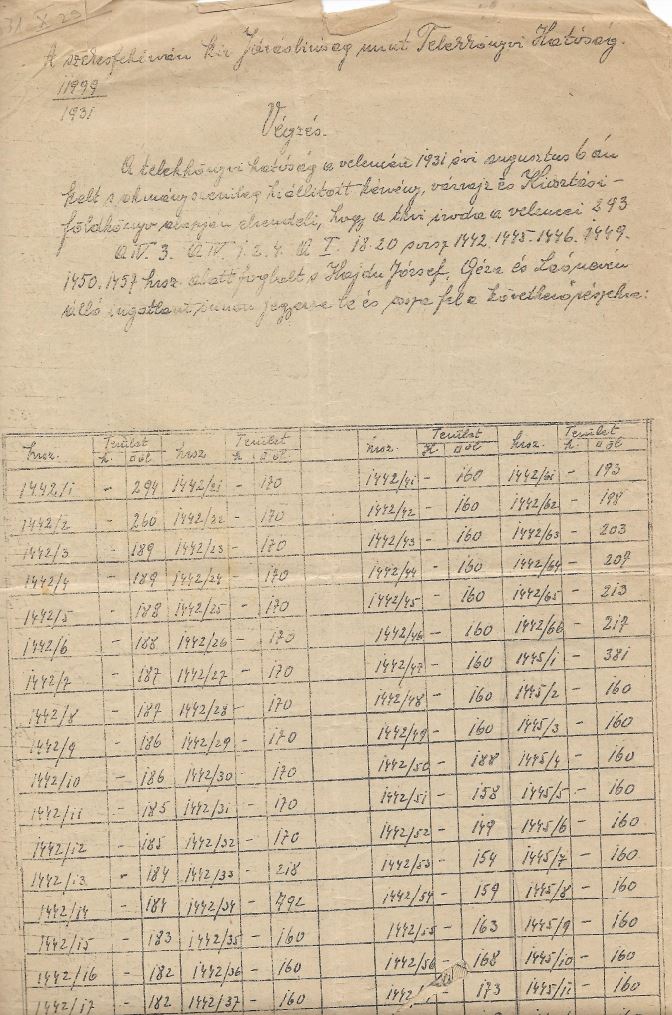 31 X 29
A székesfehérvári kir. Járásbíróság mint Telekkönyvi Hatóság.
11999
1931
Végzés.
A telekkönyvi hatóság a velencén 1931 évi augusztus 6 án
kelt s okmányszerüleg kiállitott kérvény, vázrajz és Kiosztási-
földkönyv alapján elrendeli, hogy a tkvi iroda a velencei 293
A IV. 3. A IV. 1. 2. 4. A I. 18-20 sorsz 1442. 1445-1446. 1449-
1450. 1457 hrsz. alatt foglalt s Hajdu József, Géza és
álló ingatlant innen jegyezze le és fel a következő részekre:
hrsz. Terület hrsz. Terület hrsz. Terület hrsz. Terület
h. □öl h. □öl H. □öl h. □öl
1442/1 - 294 1442/21 - 170 1442/41 - 160 1442/61 - 193
1442/2 - 260 1442/22 - 170 1442/42 - 160 1442/62 - 198
1442/3 - 189 1442/23 - 170 1442/43 - 160 1442/63 - 203
1442/4 - 189 1442/24 - 170 1442/44 - 160 1442/64 - 207
1442/5 - 188 1442/25 - 170 1442/45 - 160 1442/65 - 213
1442/6 - 188 1442/26 - 170 1442/46 - 160 1442/66 - 217
1442/7 - 187 1442/27 - 170 1442/47 - 160 1445/1 - 381
1442/8 - 187 1442/28 - 170 1442/48 - 160 1445/2 - 160
1442/9 - 186 1442/29 - 170 1442/49 - 160 1445/3 - 160
1442/10 - 186 1442/30 - 170 1442/50 - 188 1445/4 - 160
1442/11 - 185 1442/31 - 170 1442/51 - 158 1445/5 - 160
1442/12 - 185 1442/32 - 170 1442/52 - 149 1445/6 - 160
1442/13 - 184 1442/33 - 218 1442/53 - 154 1445/7 - 160
1442/14 - 184 1442/34 - 492 1442/54 - 159 1445/8 - 160
1442/15 - 183 1442/35 - 160 1442/55 - 163 1445/9 - 160
1442/16 - 182 1442/36 - 160 1442/56 - 168 1445/10 - 160
1442/17 - 182 1442/37 - 160 1442/ - 173 1445/11 - 160